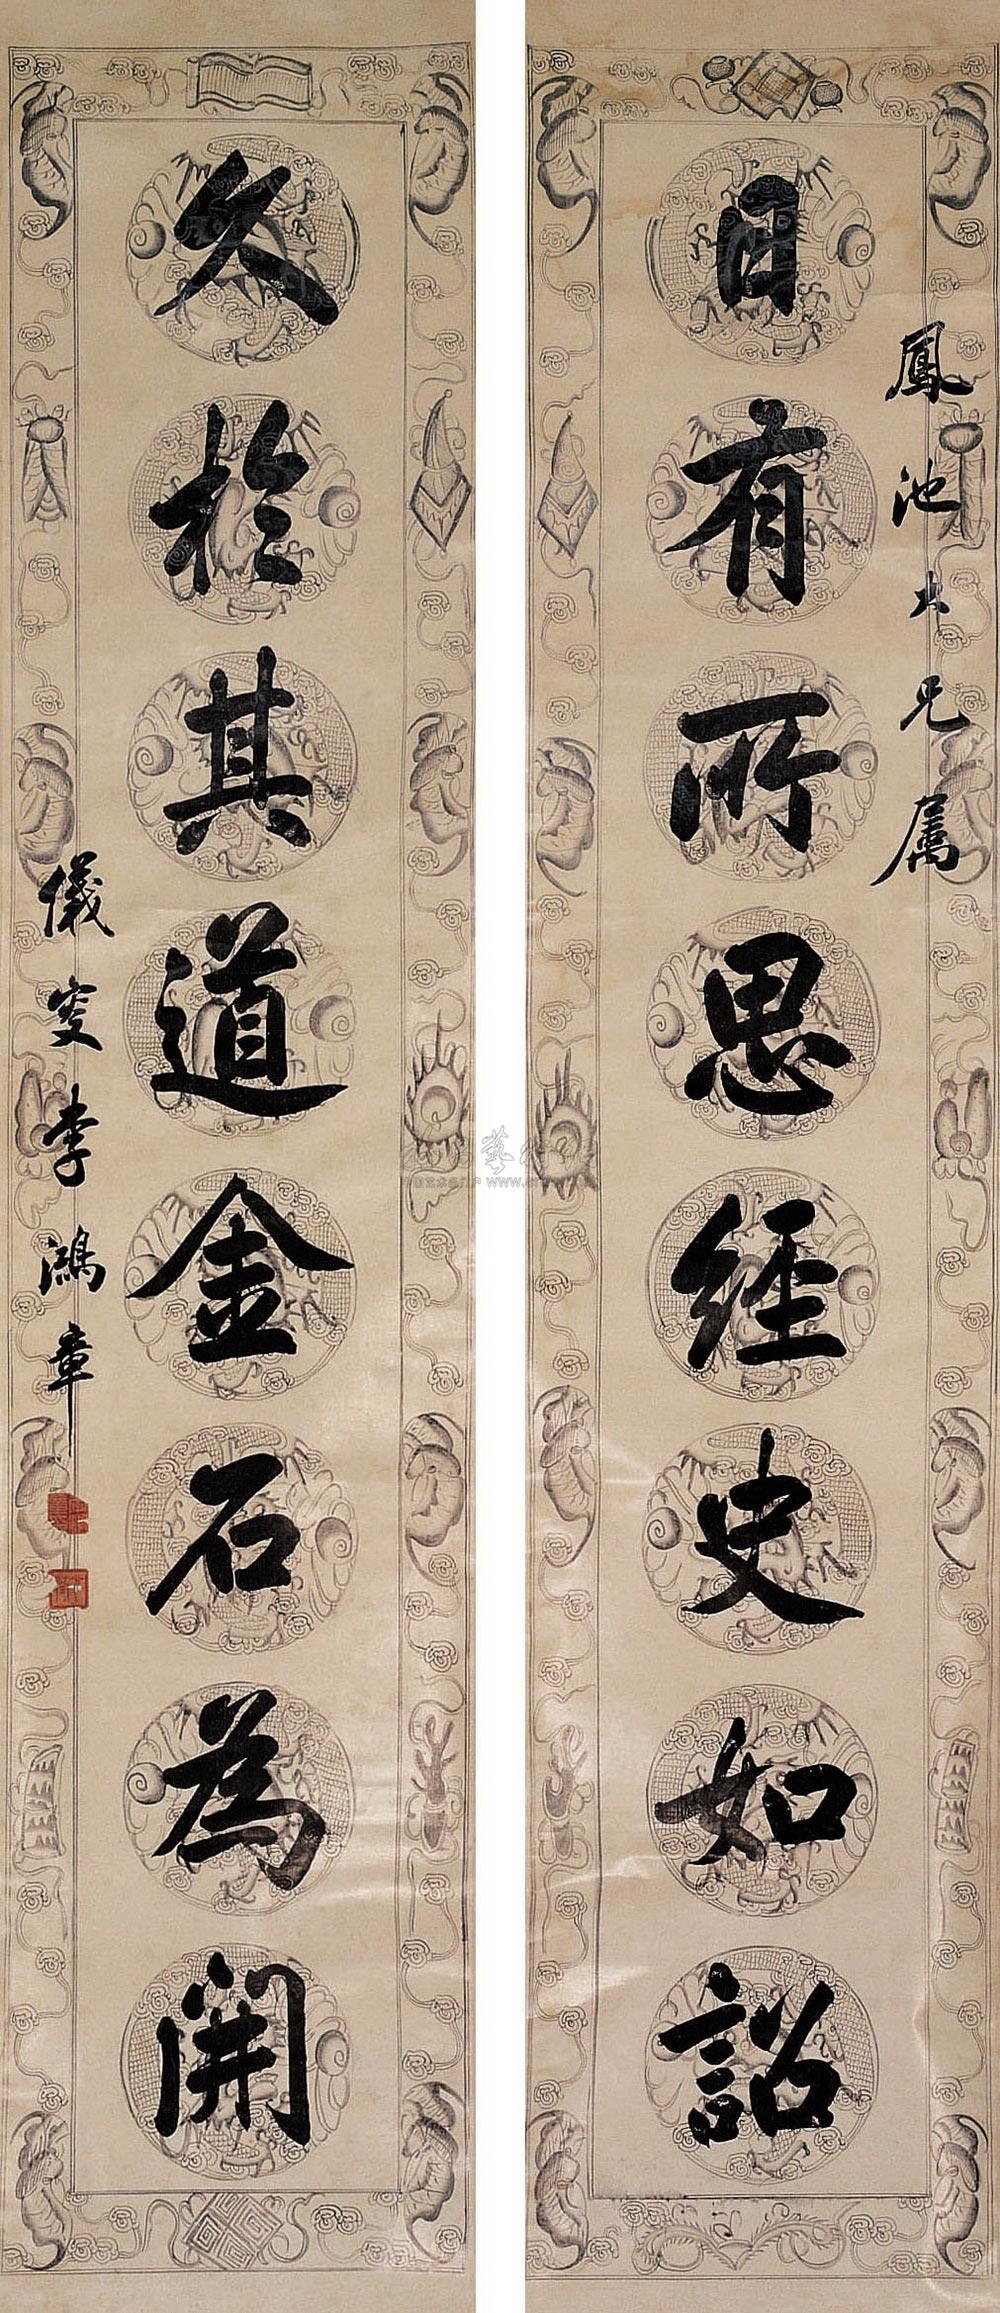 鳳池大兄屬
日有所思經史如詔
久於其道金石為開
儀叟李鴻章